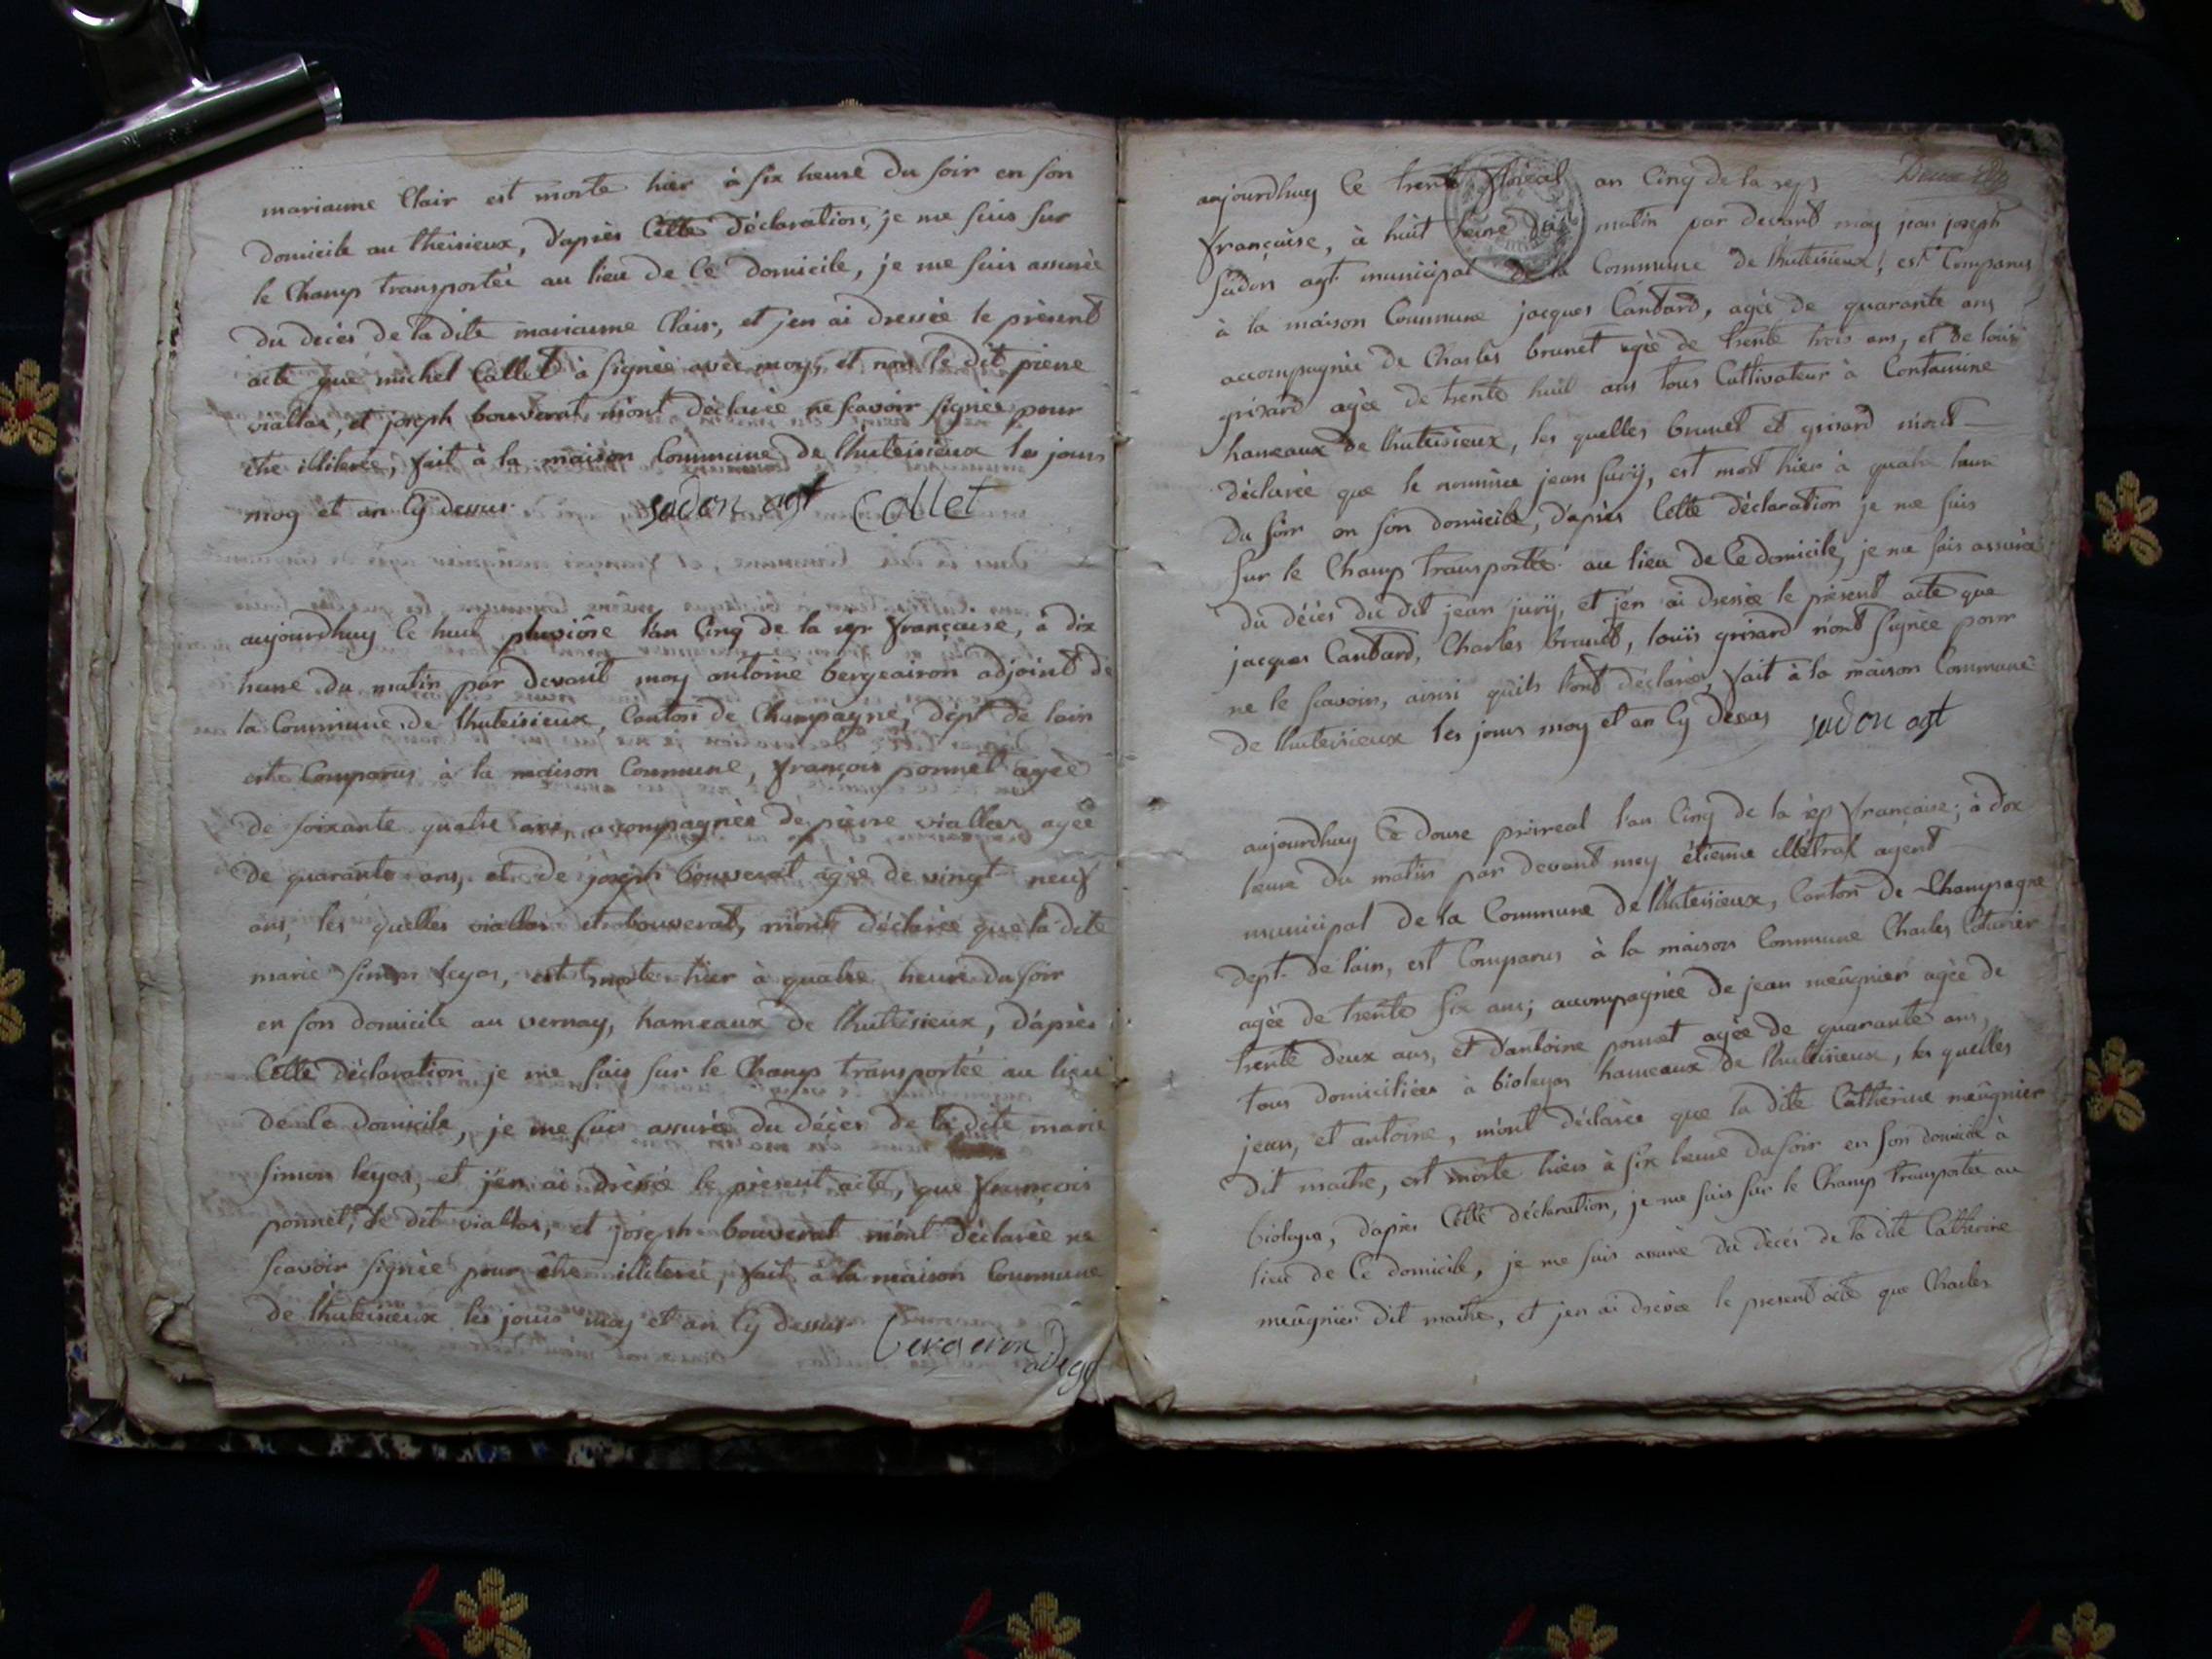 mariaume Clair est morte hier à six heure du soir en son
domicile au theisieux, d'après Cette déclaration, je me suis sur
le Champ transportée au lieu de Ce domicile, je me suis assurée
du décès de la dite mariaume Clair, et j'en ai dressée le présent
acte que michel Callet à signée avec moy, et non le dit pierre
viallas, et joseph bouverat, m'ont déclarée ne scavoir signée pour
être illiterée, fait à la maison Commune de lhuteisieux les jours
moy et an Cy dessus sudon agt Collet
aujourdhuy le huit pluviôse l'an Cinq de la rep française, à dix
heure du matin par devant moy antoine bergeairon adjoint de
la Commune de lhuteisieux, Canton de Champagne, dépt de lain
este Comparus à la maison Commune, françois ponnet agée
de soixante quatre ans, acompagnée de pierre viallas agée
de quarante ans, et de joseph bouverat agée de vingt neuf
ans, les quelles viallas et bouverat, m'ont déclarée que la dite
marie simon leyas, est morte hier à quatre heure du soir
en son domicile au vernay, hameaux de lhuteisieux, d'après
Cette déclaration je me suis sur le Champ transportée au lieu
de Ce domicile, je me suis assurée du décès de la dite marie
simon leyas, et j'en ai dressée le présent acte, que françois
ponnet, le dit viallas, et joseph bouverat m'ont déclarée ne
scavoir signée pour être illiterée, fait à la maison Commune
de lhuteisieux les jours moy et an Cy dessus
bergeron
adj agt
aujourdhuy Ce trente floréal an Cinq de la rep
française, à huit heure du matin par devant moy jean joseph
sudon agt municipal de la Commune de lhuteisieux, est Comparus
à la maison Commune jacques Cantard, agée de quarante ans
accompagnée de Charles brunet agée de trente trois ans, et de louis
grisard agée de trente huit ans tous Cultivateur à Contamine
hameaux de lhuteisieux, les quelles brunet et grisard m'ont
déclarée que le nommée jean jurij, est mort hier à quatre heure
du soir en son domicile, d'après Cette déclaration je me suis
sur le Champ transportée au lieu de Ce domicile, je me suis assurée
du décès du dit jean jurij, et j'en ai dressée le présent acte que
jacques Cantard, Charles brunet, louis grisard n'ont signée pour
ne le scavoir, ainsi qu'ils l'ont déclarée, fait à la maison Commune
de lhuteisieux les jours moy et an Cy dessus sudon agt
aujourdhuy Ce douse prireal l'an Cinq de la rep française, à dix
heure du matin par devant moy étienne Métral agent
municipal de la Commune de lhuteisieux, Canton de Champagne
dept de lain, est Comparus à la maison Commune Charles
agée de trente six ans; accompagnée de jean meûgnier agée de
trente deux ans, et d'antoine ponnet agée de quarante ans,
tous domiciliées à bioleyas hameaux de lhuteisieux, les quelles
jean, et antoine, m'ont déclarée que la dite Catherine meûgnier
dit maitre, est morte hier à six heure du soir en son domicile à
bioleyas, d'après Cette déclaration, je me suis sur le Champ transportée au
lieu de Ce domicile, je me suis assurée du décès de la dite Catherine
meûgnier dit maitre, et j'en ai dressée le présent acte que Charles